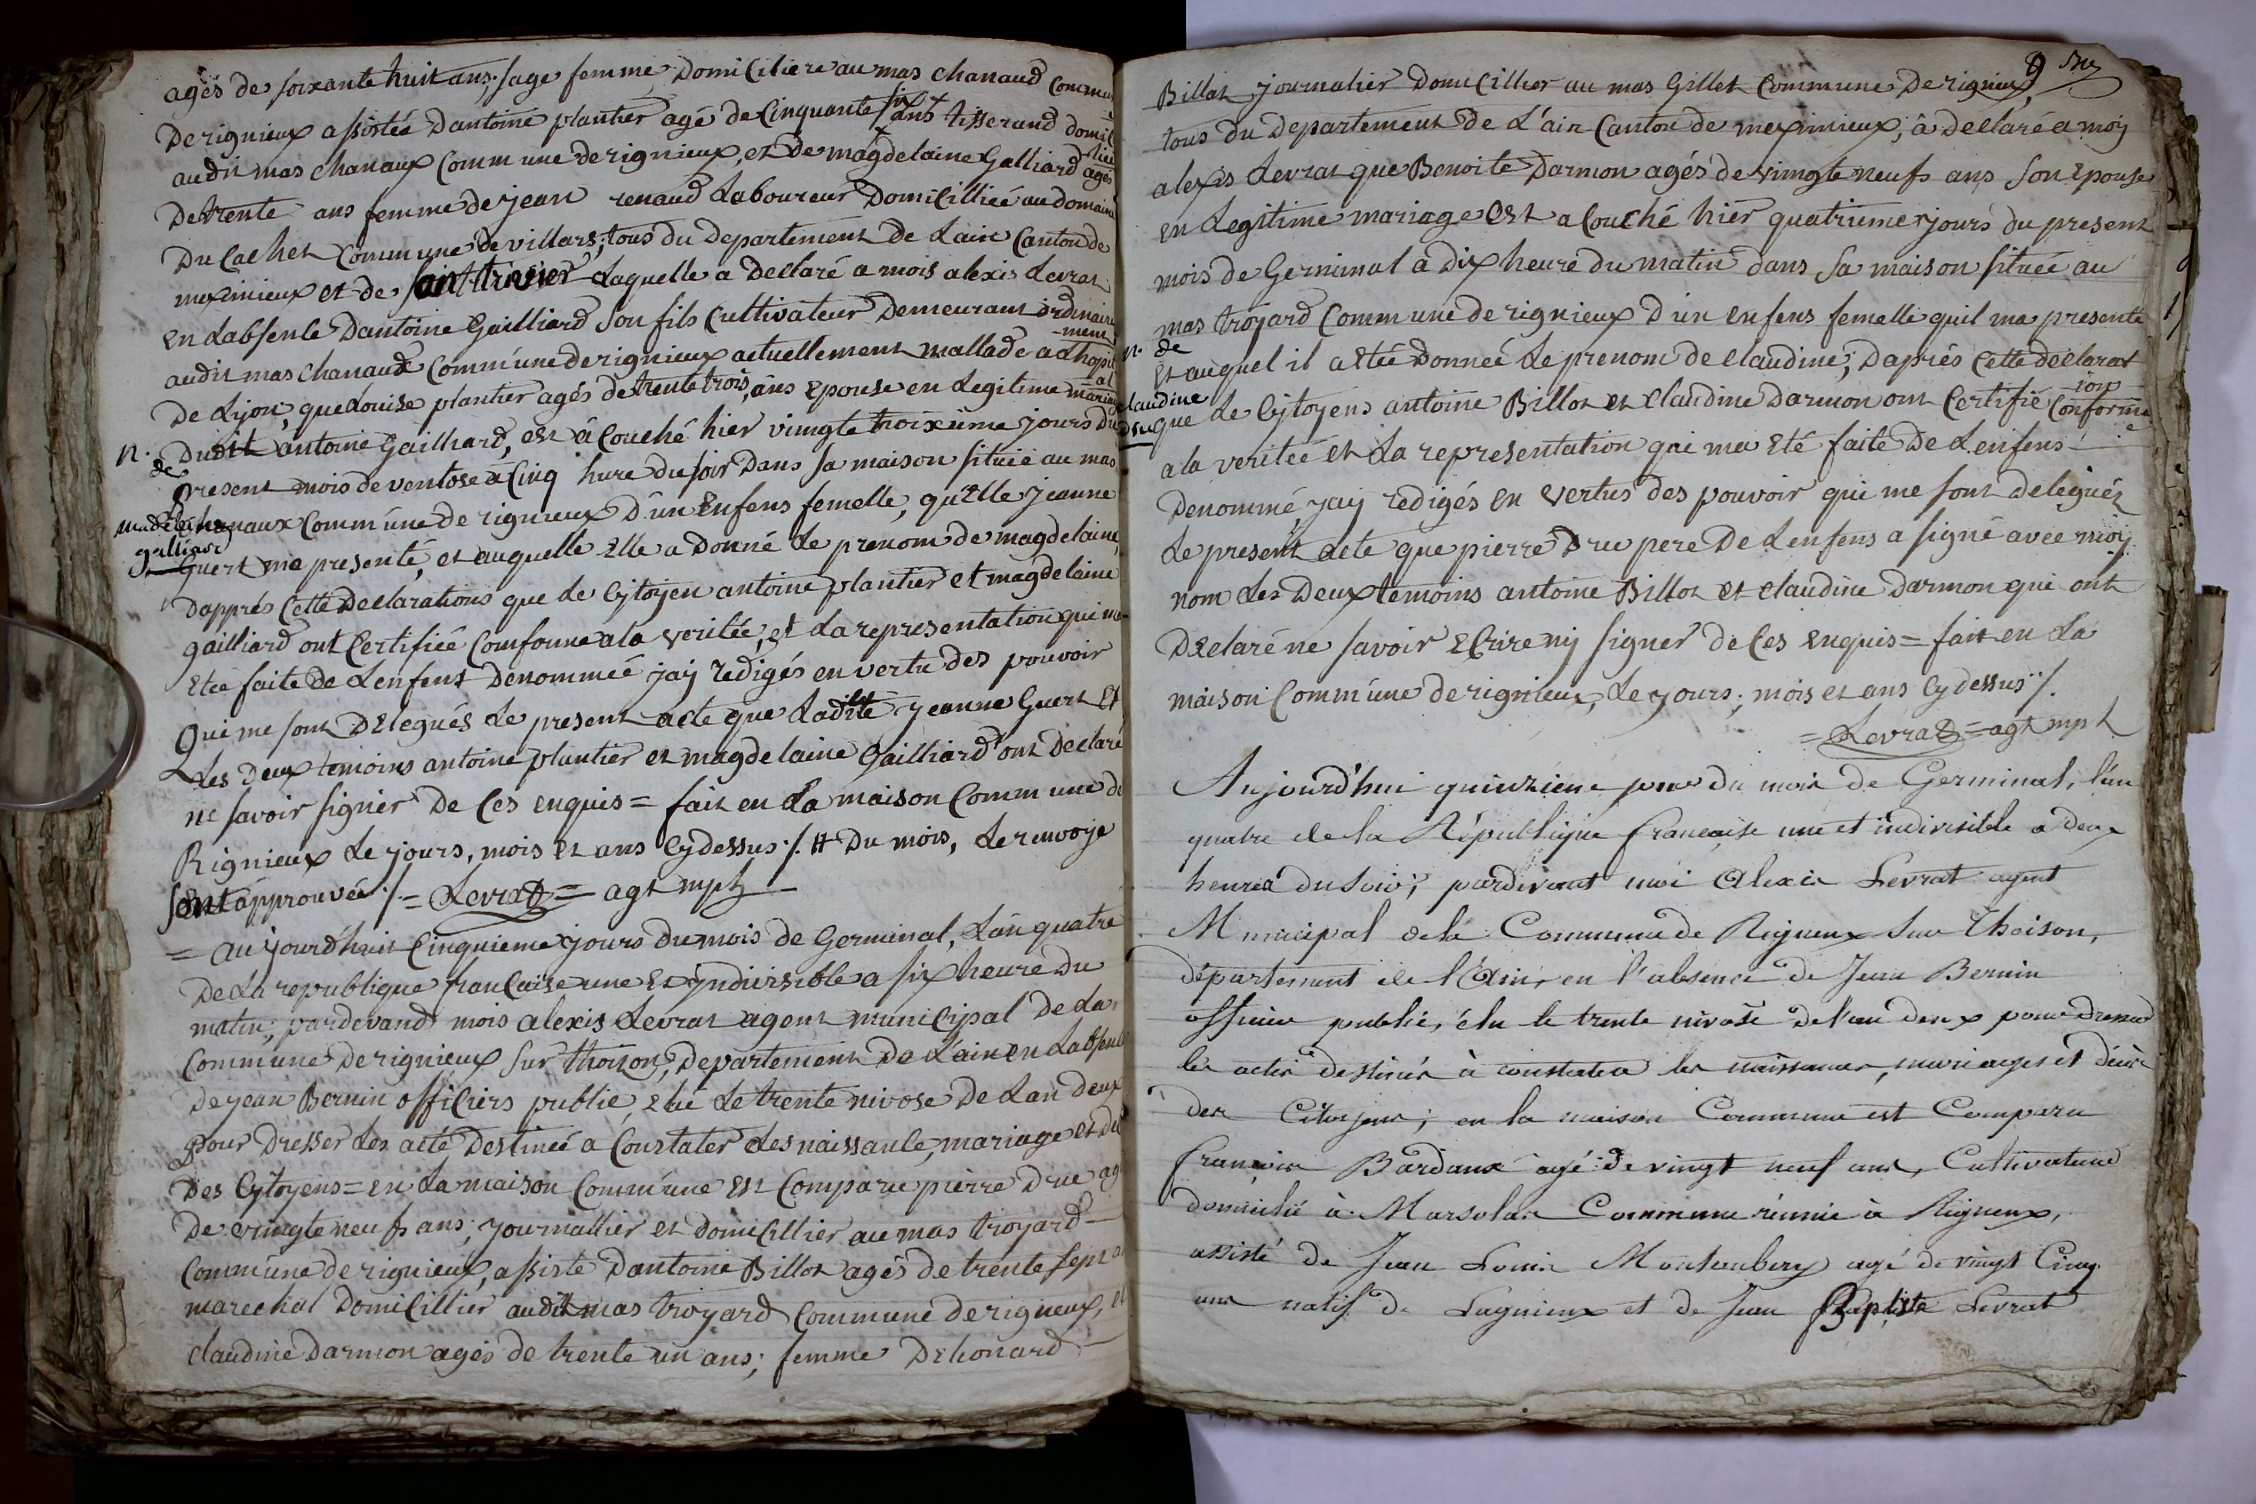 agés de soixante huit ans; sage femme Domiciliere au mas chanaud Commu
De rignieux assistée Dantoine plantier agé de Cinquante six ans tisserand domici
lier
audit mas chanaux Commune de rignieux, et De magdelaine Galliard agés
De trente ans femme de jean renaud Laboureur Domicilliée au domaine
Du Cachet Commune de villars; tous du Departement de Lain Canton de
meximieux et de Saint trivier Laquelle a Declaré a mois alexis Levrat
En Labsence Dantoine Gailliard Son fils Cultivateur Demeurant ordinaire
ment
audit mas chanaux Commune de rignieux actuellement mallade a Lhopit
al
De Lijon, que Louise plantier agés de trente trois, ans Epouse en Legitime mariage
n. Dudit antoine Gailliard, est a Couché hier vingte troixieme jours du
de
present mois de ventose a Cinq hure du soir Dans sa maison située au mas
madeleine
chanaux Commune de rignieux D'un Enfens femelle, qu'Elle jeanne
galliard
Guert ma presenté, et auquelle Elle a Donné Le prenom de magdelaine,
Dapprés Cette Declarations que Le Cytoyen antoine plantier et magdelaine
gailliard ont Certifiée Comforme a la verité, et La representation qui ma
Etée faite de Lenfens Denommée jay redigés en vertu des pouvoir
Qui me sont Delegués Le present acte que Ladite jeanne Guert Et
Les Deux temoins antoine plantier et magdelaine Gailliard ont Declaré
ne savoir signer De Ces enquis = fait en La maison Commune de
Rignieux Le jours, mois et ans Cydessus ./. # Du mois, Le renvoye
sont approuvée ./. = Levrat = agt mpl
= aujourd'huit Cinquieme jours du mois de Germinal, Lan quatre
De La republique francaise une Et yndivisible a six heure Du
matin; pardevand mois alexis Levrat agent municipal De La
Commune De rignieux sur thoizon, Departement De L'ain en Labsence
de jean Bernin officiers publié, Elue Le trente nivose De Lan Deux
pour Dresser Les acte Destinée a Constater Les naissance, mariage et dé
Des Cytoyens = en La maison Commune est Comparu pierre Drue agé
De vingte neufs ans; journallier et Domicillier au mas troyard
Commune de rignieux, assiste Dantoine Billot agés de trente sept an
marechal Domicillier audit mas troyard Commune de rigneux, et
claudine Darmon agés de trente un ans; femme Dehonard
9
Billat journalier Domicillier au mas Gillet Commune De rignieux,
tous du Departement de L'ain Canton de meximieux; à Declaré a moy
alexis Levrat que Benoite Darmon agés de vingte neufs ans son Epouse
en Legitime mariage est a Couché hier quatrieme jours du present
mois de Germinal a Dix heure du matin dans sa maison située au
mas troyard Commune de rignieux D'un enfens femelle quil ma presente
n.
de
Et auquel il a etée Donneé Le prenom de Claudine; Daprés Cette Declarat
ion
claudine
drue
que Le Cytoyens antoine Billot et Claudine Darmon ont Certifié Conforme
a la veritée et La representation qui ma Eté faite De Lenfens
Denommé jay redigés en vertus des pouvoir qui me sont delegués
Le present acte que pierre Drue pere De Lenfens a signé avec moy
nom Les Deux temoins antoine Billot et claudine Darmon qui ont
Declaré ne savoir Ecrire ny signer de Ces enquis = fait en La
maison Commune de rignieux, Le jours; mois et ans Cydessus ./.
= Levrat = agt mpl
Aujourd'hui quinzieme jour du mois de Germinal, l'an
quatre de la République francaise une et indivisible a deux
heures du soir; pardevant moi Alexis Levrat agent
Municipal de la Commune de Rigneux sur Thoison,
département de l'Ain, en l'absence de Jean Bernin
officier public, élu le trente nivose de l'an deux pour dresser
les actes destinés à constater les naissances, mariages et décès
des Citoyens; en la maison Commune est Comparu
françois Bardaux agé de vingt neuf ans, Cultivateur
domicilié à Marsolas Commune réunie à Rigneux,
assisté de Jean Louis agé de vingt Cinq
ans natif de Lagnieux et de Jean Baptiste Levrat